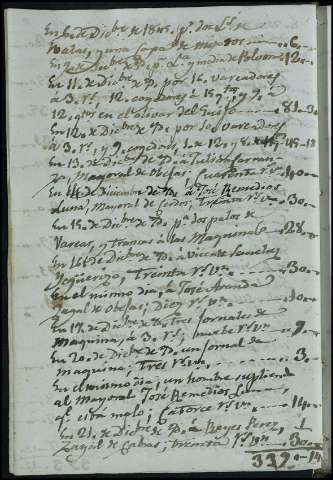 En 6 de Dicbre de 1845. pr. dos
Varas, y una sopa de
En 9 de Dicbre Dr. pr. y media de Polvora 12.
En 11. de Dicbre Dr. por 16. vareadores
à 3. rs. 12. cogedores à y 9. à
12. qtos en el olivar del 81..3
En 12. de Dicbre Dr. por 10 vareadores
à 3. rs. y 9. cogedores, 1. à 12. y 8. 45-18
En 13. de Dicbre de Dr. à Julian
Mayoral de Obejas; Cuarenta rs. 40
En 14 de Diciembre de Dr. à José Remedios
Luna, Mayoral de Cerdos; Treinta rs. vn. 30
En 15. de Dicbre de Dr. pr. dos palos de
Varear, y trancas à las Maquinas 28
En 16 de Dicbre de Dr. à Vicente Sanchez
Yegüerizo, Treinta rs. vn. 30
En el mismo dia, à José Aranda
Zagal de Obejas; Diez rs. vn. 10
En 17. de Dicbre Dr. tres jornales de
Maquina, à 3. rs.; nuebe rs. vn. 9
En 20. de Dicbre de Dr. un jornal de
maquina; Tres rs. vn. 3
En el mismo dia, un hombre supliendo
al Mayoral José Remedios Luna
qe. esta malo; Catorce rs. vn. 14
En 21. de Dicbre de Dr. à Reyes Perez,
Zagal de Cabras; treinta rs. vn. 30
332-14